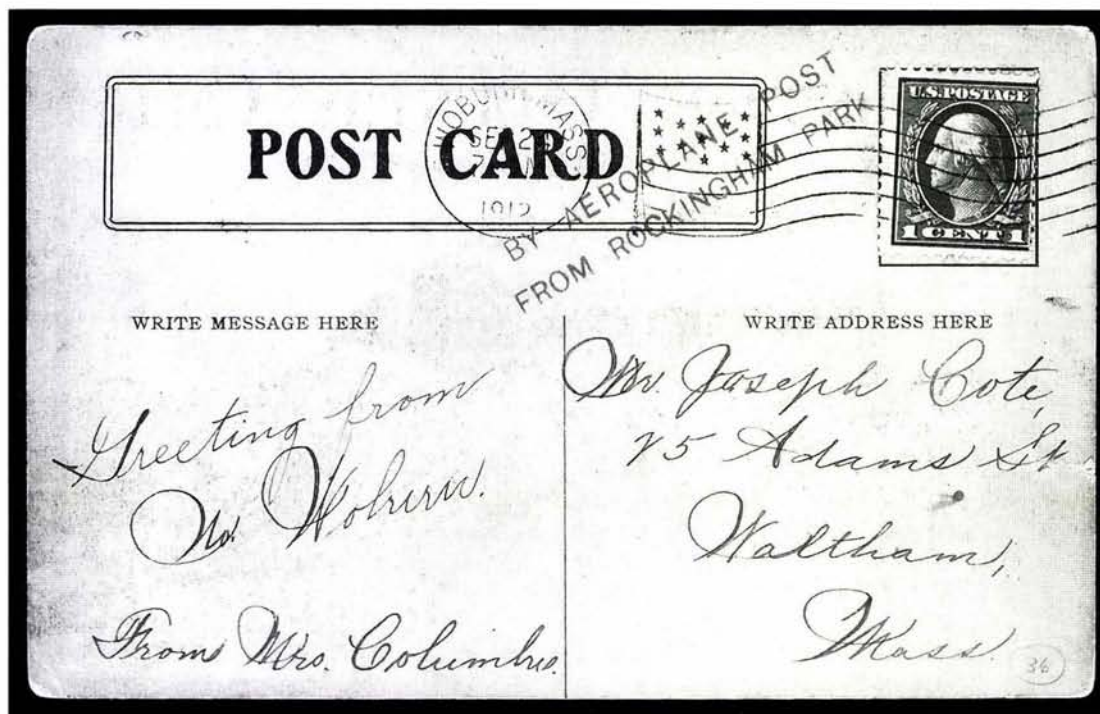 POST CARD
WOBURN MASS.
SEP 2
1912
BY AEROPLANE POST
FROM ROCKINGHAM PARK
U.S. POSTAGE
1 CENT 1
WRITE MESSAGE HERE
Greeting from
No. Woburn.
From Mrs. Columbus.
WRITE ADDRESS HERE
Mr. Joseph Cote,
75 Adams St
Waltham,
Mass.
36